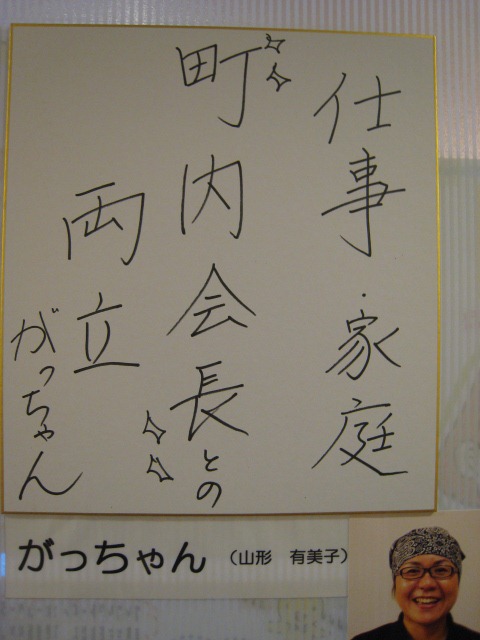 仕事・家庭
町内会長との
両立
がっちゃん
がっちゃん（山形　有美子）